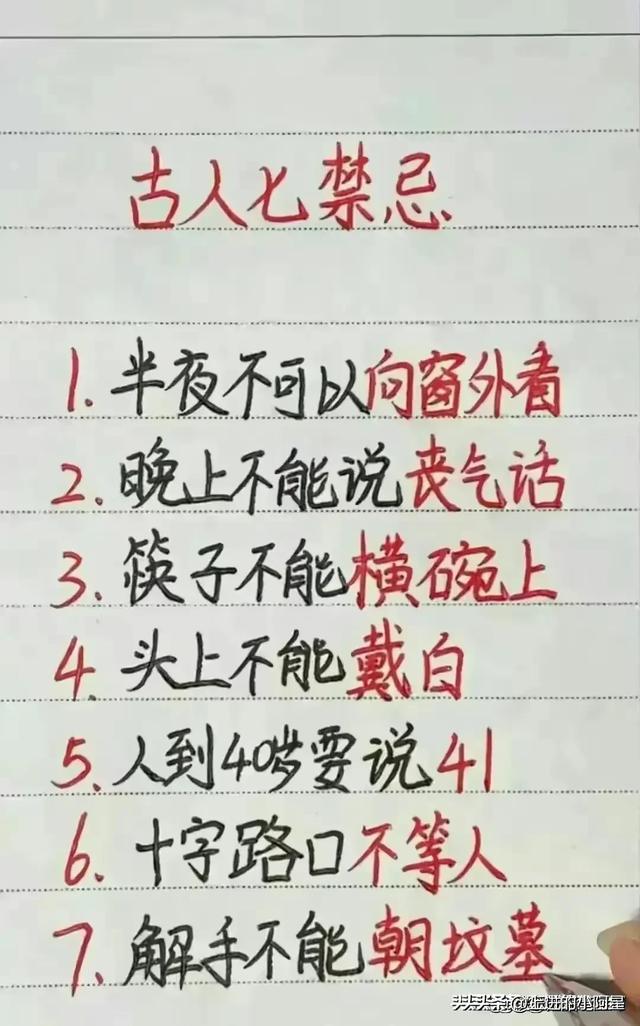 古人七禁忌
1. 半夜不可以向窗外看
2. 晚上不能说丧气话
3. 筷子不能横碗上
4. 头上不能戴白
5. 人到40岁要说41
6. 十字路口不等人
7. 解手不能朝坟墓
头条